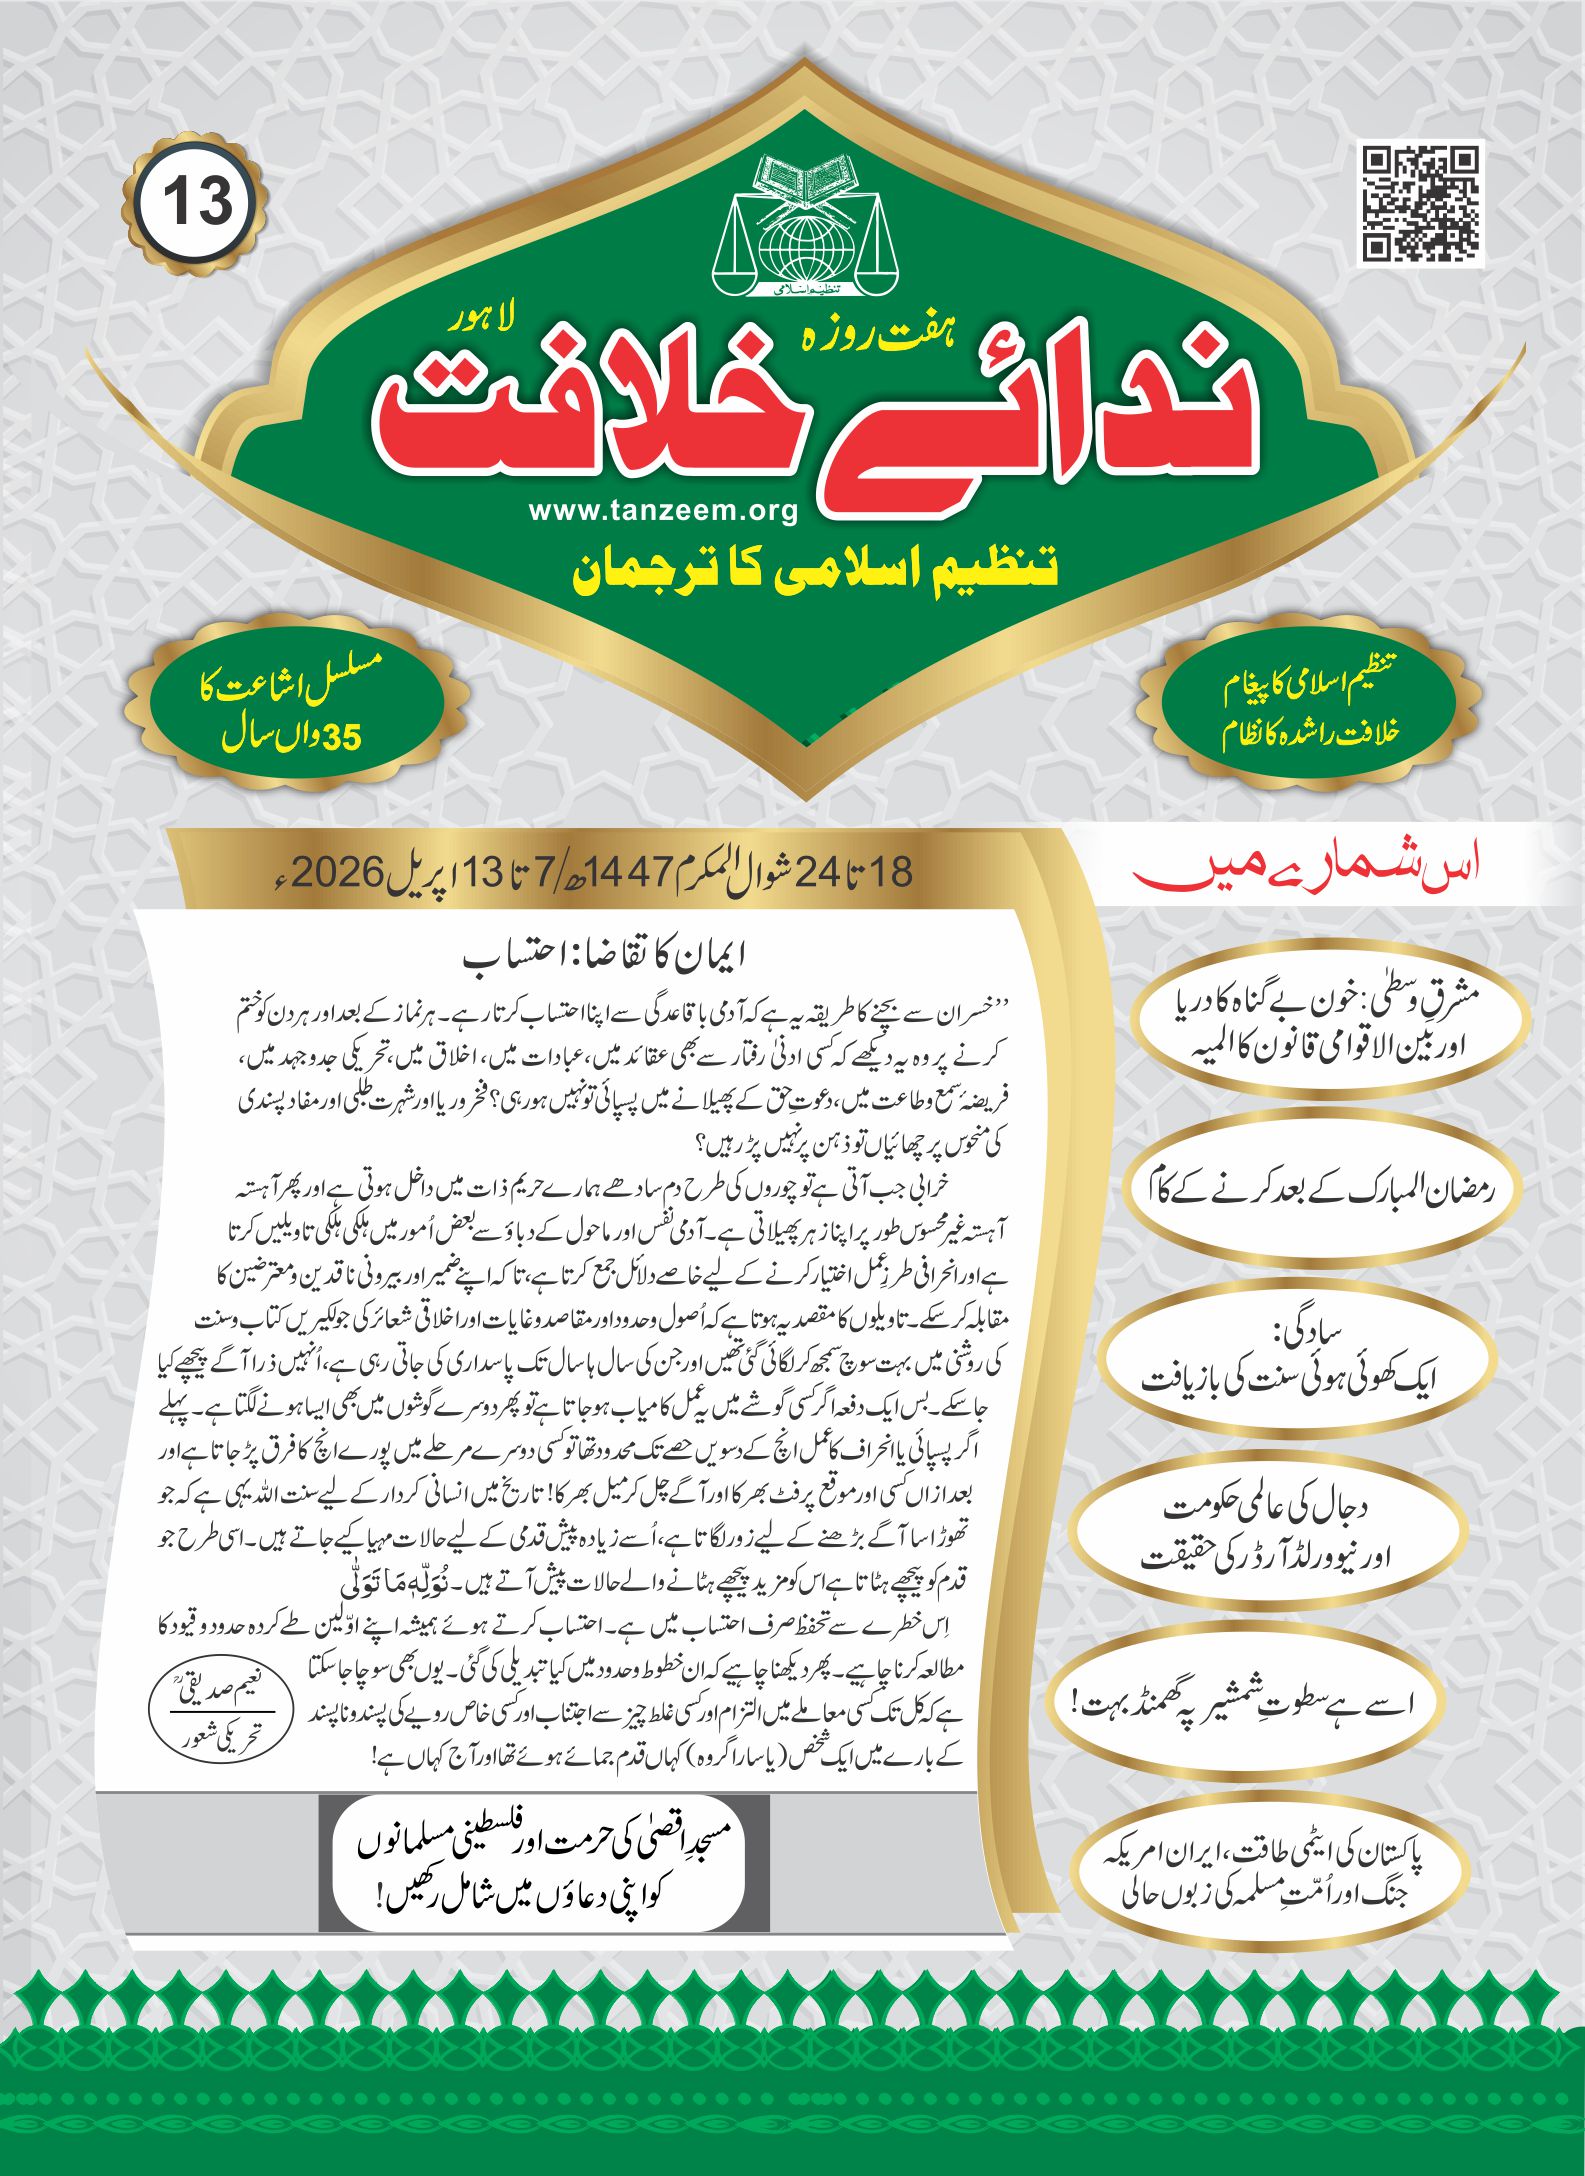 13
تنظیم اسلامی
لاہور
ہفت روزہ
ندائے خلافت
www.tanzeem.org
تنظیم اسلامی کا ترجمان
تنظیم اسلامی کا پیغام
خلافت راشدہ کا نظام
مسلسل اشاعت کا
35 واں سال
18 تا 24 شوال المکرم 1447ھ/7 تا 13 اپریل 2026ء
ایمان کا تقاضا: احتساب
’’خسران سے بچنے کا طریقہ یہ ہے کہ آدمی باقاعدگی سے اپنا احتساب کرتا رہے۔ ہر نماز کے بعد اور ہر دن کو ختم
کرنے پر وہ یہ دیکھے کہ کسی ادنیٰ رفتار سے بھی عقائد میں، عبادات میں، اخلاق میں، تحریکی جدوجہد میں،
فریضۂ سمع و طاعت میں، دعوتِ حق کے پھیلانے میں پسپائی تو نہیں ہو رہی؟ فخر و ریا اور شہرت طلبی اور مفاد پسندی
کی منحوس پرچھائیاں تو ذہن پر نہیں پڑ رہیں؟
خرابی جب آتی ہے تو چوروں کی طرح دم سادھے ہمارے حریم ذات میں داخل ہوتی ہے اور پھر آہستہ
آہستہ غیر محسوس طور پر اپنا زہر پھیلاتی ہے۔ آدمی نفس اور ماحول کے دباؤ سے بعض اُمور میں ہلکی ہلکی تاویلیں کرتا
ہے اور انحرافی طرزِ عمل اختیار کرنے کے لیے خاصے دلائل جمع کرتا ہے، تاکہ اپنے ضمیر اور بیرونی ناقدین و معترضین کا
مقابلہ کر سکے۔ تاویلوں کا مقصد یہ ہوتا ہے کہ اُصول و حدود اور مقاصد و غایات اور اخلاقی شعائر کی جو لکیریں کتاب و سنت
کی روشنی میں بہت سوچ سمجھ کر لگائی گئی تھیں اور جن کی سال ہا سال تک پاسداری کی جاتی رہی ہے، اُنہیں ذرا آگے پیچھے کیا
جا سکے۔ بس ایک دفعہ اگر کسی گوشے میں یہ عمل کامیاب ہو جاتا ہے تو پھر دوسرے گوشوں میں بھی ایسا ہونے لگتا ہے۔ پہلے
اگر پسپائی یا انحراف کا عمل انچ کے دسویں حصے تک محدود تھا تو کسی دوسرے مرحلے میں پورے انچ کا فرق پڑ جاتا ہے اور
بعد ازاں کسی اور موقع پر فٹ بھر کا اور آگے چل کر میل بھر کا! تاریخ میں انسانی کردار کے لیے سنت اللہ یہی ہے کہ جو
تھوڑا سا آگے بڑھنے کے لیے زور لگاتا ہے، اُسے زیادہ پیش قدمی کے لیے حالات مہیا کیے جاتے ہیں۔ اسی طرح جو
قدم کو پیچھے ہٹاتا ہے اس کو مزید پیچھے ہٹانے والے حالات پیش آتے ہیں۔ نُوَلِّهٖ مَا تَوَلّٰى
اِس خطرے سے تحفظ صرف احتساب میں ہے۔ احتساب کرتے ہوئے ہمیشہ اپنے اوّلین طے کردہ حدود و قیود کا
مطالعہ کرنا چاہیے۔ پھر دیکھنا چاہیے کہ ان خطوط و حدود میں کیا تبدیلی کی گئی۔ یوں بھی سوچا جا سکتا
ہے کہ کل تک کسی معاملے میں التزام اور کسی غلط چیز سے اجتناب اور کسی خاص رویے کی پسند و ناپسند
کے بارے میں ایک شخص (یا سارا گروہ) کہاں قدم جمائے ہوئے تھا اور آج کہاں ہے!
نعیم صدیقیؒ
تحریکی شعور
مسجدِ اقصیٰ کی حرمت اور فلسطینی مسلمانوں
کو اپنی دعاؤں میں شامل رکھیں!
اس شمارے میں
مشرقِ وسطیٰ: خون بے گناہ کا دریا
اور بین الاقوامی قانون کا المیہ
رمضان المبارک کے بعد کرنے کے کام
سادگی:
ایک کھوئی ہوئی سنت کی بازیافت
دجال کی عالمی حکومت
اور نیو ورلڈ آرڈر کی حقیقت
اسے ہے سطوتِ شمشیر پہ گھمنڈ بہت!
پاکستان کی ایٹمی طاقت، ایران امریکہ
جنگ اور اُمّتِ مسلمہ کی زبوں حالی